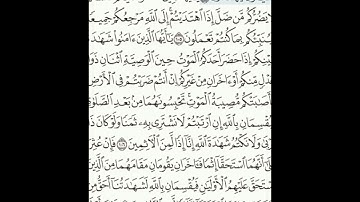 لَا يَضُرُّكُم مَّن ضَلَّ إِذَا ٱهْتَدَيْتُمْ إِلَى ٱللَّهِ مَرْجِعُكُمْ جَمِيعًا
فَيُنَبِّئُكُم بِمَا كُنتُمْ تَعْمَلُونَ ١٠٥ يَٰٓأَيُّهَا ٱلَّذِينَ ءَامَنُوا۟ شَهَٰدَةُ
بَيْنِكُمْ إِذَا حَضَرَ أَحَدَكُمُ ٱلْمَوْتُ حِينَ ٱلْوَصِيَّةِ ٱثْنَانِ ذَوَا
عَدْلٍ مِّنكُمْ أَوْ ءَاخَرَانِ مِنْ غَيْرِكُمْ إِنْ أَنتُمْ ضَرَبْتُمْ فِى ٱلْأَرْضِ
فَأَصَٰبَتْكُم مُّصِيبَةُ ٱلْمَوْتِ تَحْبِسُونَهُمَا مِنۢ بَعْدِ ٱلصَّلَوٰةِ
فَيُقْسِمَانِ بِٱللَّهِ إِنِ ٱرْتَبْتُمْ لَا نَشْتَرِى بِهِۦ ثَمَنًا وَلَوْ كَانَ ذَا
قُرْبَىٰ وَلَا نَكْتُمُ شَهَٰدَةَ ٱللَّهِ إِنَّآ إِذًا لَّمِنَ ٱلْءَاثِمِينَ ١٠٦ فَإِنْ عُثِرَ
عَلَىٰٓ أَنَّهُمَا ٱسْتَحَقَّآ إِثْمًا فَـَٔاخَرَانِ يَقُومَانِ مَقَامَهُمَا مِنَ ٱلَّذِينَ
ٱسْتَحَقَّ عَلَيْهِمُ ٱلْأَوْلَيَٰنِ فَيُقْسِمَانِ بِٱللَّهِ لَشَهَٰدَتُنَآ أَحَقُّ مِن